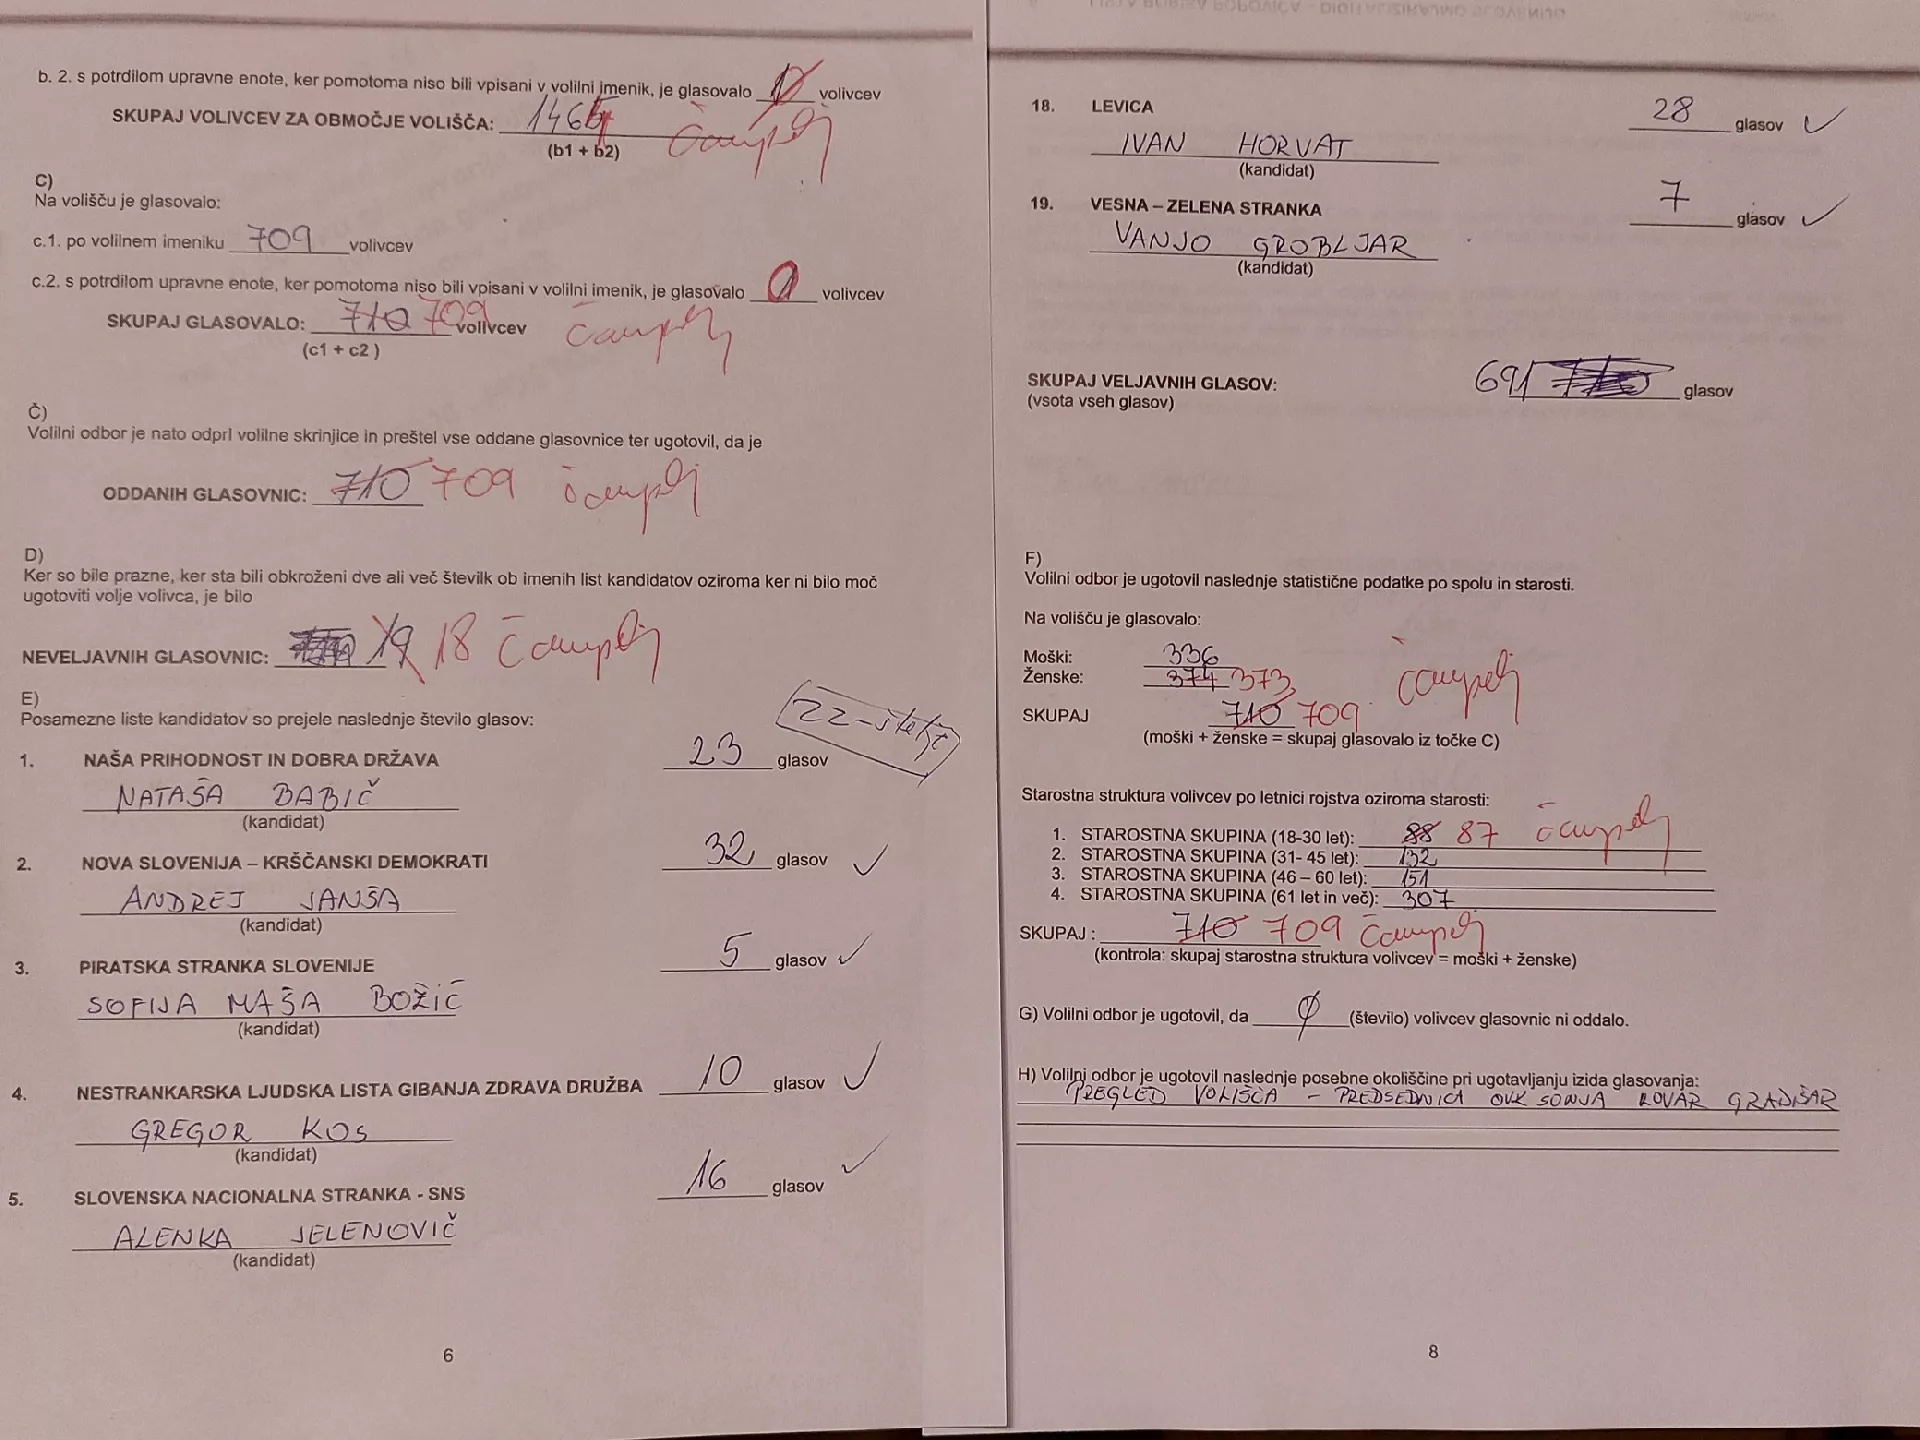 b. 2. s potrdilom upravne enote, ker pomotoma niso bili vpisani v volilni imenik, je glasovalo volivcev
SKUPAJ VOLIVCEV ZA OBMOČJE VOLIŠČA:
(b1 + b2)
C)
Na volišču je glasovalo:
c.1. po volilnem imeniku 709 volivcev
c.2. s potrdilom upravne enote, ker pomotoma niso bili vpisani v volilni imenik, je glasovalo 0 volivcev
SKUPAJ GLASOVALO: 710 709 volivcev
(c1 + c2 )
Č)
Volilni odbor je nato odprl volilne skrinjice in preštel vse oddane glasovnice ter ugotovil, da je
ODDANIH GLASOVNIC: 710 709
D)
Ker so bile prazne, ker sta bili obkroženi dve ali več številk ob imenih list kandidatov oziroma ker ni bilo moč
ugotoviti volje volivca, je bilo
NEVELJAVNIH GLASOVNIC: 19 18
E)
Posamezne liste kandidatov so prejele naslednje število glasov:
1. NAŠA PRIHODNOST IN DOBRA DRŽAVA 23 glasov
NATAŠA BABIČ
(kandidat)
2. NOVA SLOVENIJA – KRŠČANSKI DEMOKRATI 32 glasov ✓
ANDREJ JANŠA
(kandidat)
3. PIRATSKA STRANKA SLOVENIJE 5 glasov ✓
SOFIJA MAŠA BOŽIČ
(kandidat)
4. NESTRANKARSKA LJUDSKA LISTA GIBANJA ZDRAVA DRUŽBA 10 glasov ✓
GREGOR KOS
(kandidat)
5. SLOVENSKA NACIONALNA STRANKA - SNS 16 glasov ✓
ALENKA JELENOVIČ
(kandidat)
6
18. LEVICA 28 glasov ✓
IVAN HORVAT
(kandidat)
19. VESNA – ZELENA STRANKA 7 glasov ✓
VANJO GROBLJAR
(kandidat)
SKUPAJ VELJAVNIH GLASOV: 691 glasov
(vsota vseh glasov)
F)
Volilni odbor je ugotovil naslednje statistične podatke po spolu in starosti.
Na volišču je glasovalo:
Moški: 336
Ženske: 374 373
SKUPAJ 710 709
(moški + ženske = skupaj glasovalo iz točke C)
Starostna struktura volivcev po letnici rojstva oziroma starosti:
1. STAROSTNA SKUPINA (18-30 let): 88 87
2. STAROSTNA SKUPINA (31- 45 let): 132
3. STAROSTNA SKUPINA (46 – 60 let): 151
4. STAROSTNA SKUPINA (61 let in več): 307
SKUPAJ : 710 709
(kontrola: skupaj starostna struktura volivcev = moški + ženske)
G) Volilni odbor je ugotovil, da 0 (število) volivcev glasovnic ni oddalo.
H) Volilni odbor je ugotovil naslednje posebne okoliščine pri ugotavljanju izida glasovanja:
PREGLED VOLIŠČA – PREDSEDNICA OVK SONJA LOVAR GRADIŠAR
8